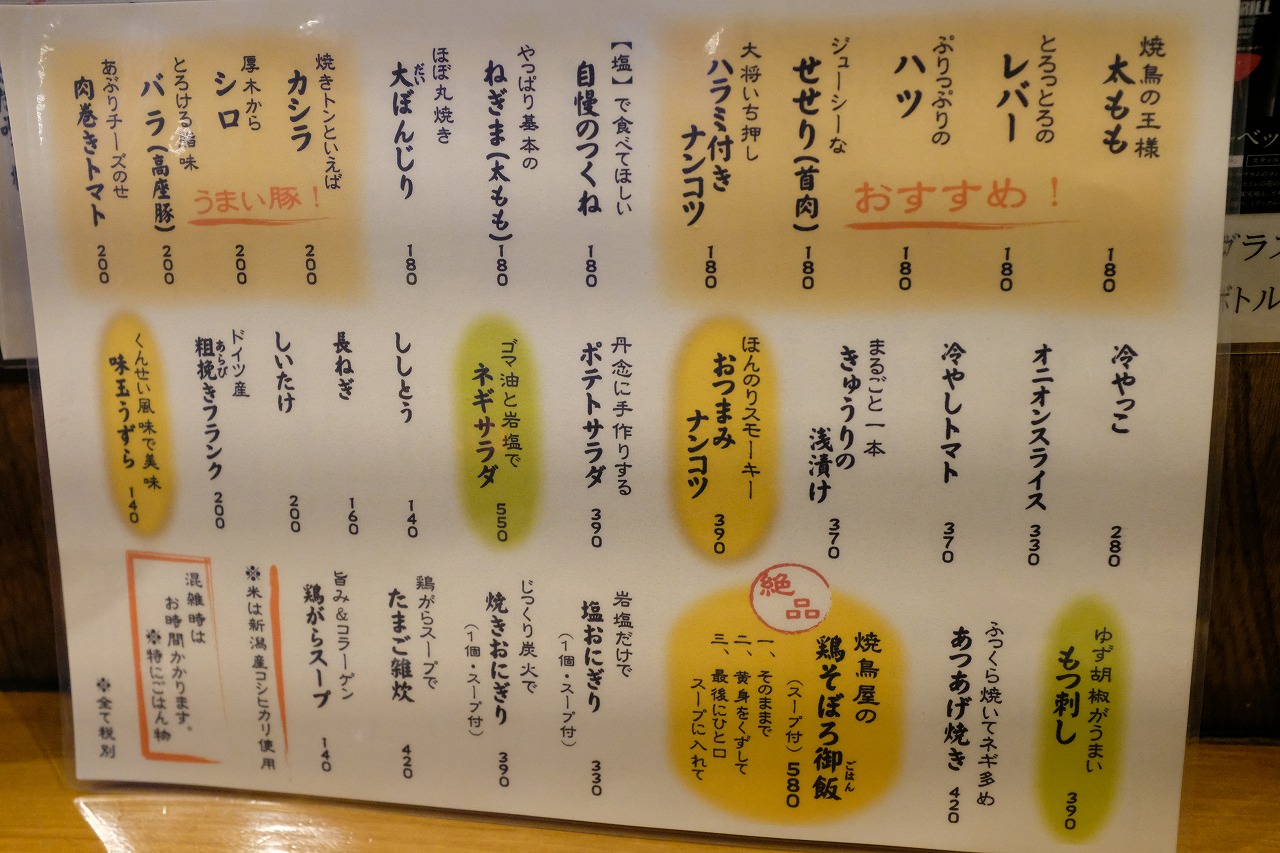 焼鳥の王様
太もも
180
とろっとろの
レバー
180
ぷりっぷりの
ハツ
180
おすすめ！
ジューシーな
せせり（首肉）
180
大将いち押し
ハラミ付き
ナンコツ
180
【塩】で食べてほしい
自慢のつくね
180
やっぱり基本の
ねぎま（太もも）
180
ほぼ丸焼き
大ぼんじり
だい
180
焼きトンといえば
カシラ
200
厚木から
シロ
200
うまい豚！
とろける脂味
バラ（高座豚）
200
あぶりチーズのせ
肉巻きトマト
200
冷やっこ
280
オニオンスライス
330
冷やしトマト
370
まるごと一本
きゅうりの
浅漬け
370
ほんのりスモーキー
おつまみ
ナンコツ
390
丹念に手作りする
ポテトサラダ
390
ゴマ油と岩塩で
ネギサラダ
550
ししとう
140
長ねぎ
160
しいたけ
200
ドイツ産
粗挽きフランク
あらび
200
くんせい風味で美味
味玉うずら
140
ゆず胡椒がうまい
もつ刺し
390
ふっくら焼いてネギ多め
あつあげ焼き
420
絶品
焼鳥屋の
鶏そぼろ御飯
ごはん
（スープ付）
580
一、そのままで
二、黄身をくずして
三、最後にひと口
スープに入れて
岩塩だけで
塩おにぎり
（1個・スープ付）
330
じっくり炭火で
焼きおにぎり
（1個・スープ付）
390
鶏がらスープで
たまご雑炊
420
旨み＆コラーゲン
鶏がらスープ
140
※米は新潟産コシヒカリ使用
混雑時は
お時間かかります。
※特にごはん物
※全て税別
ボトル